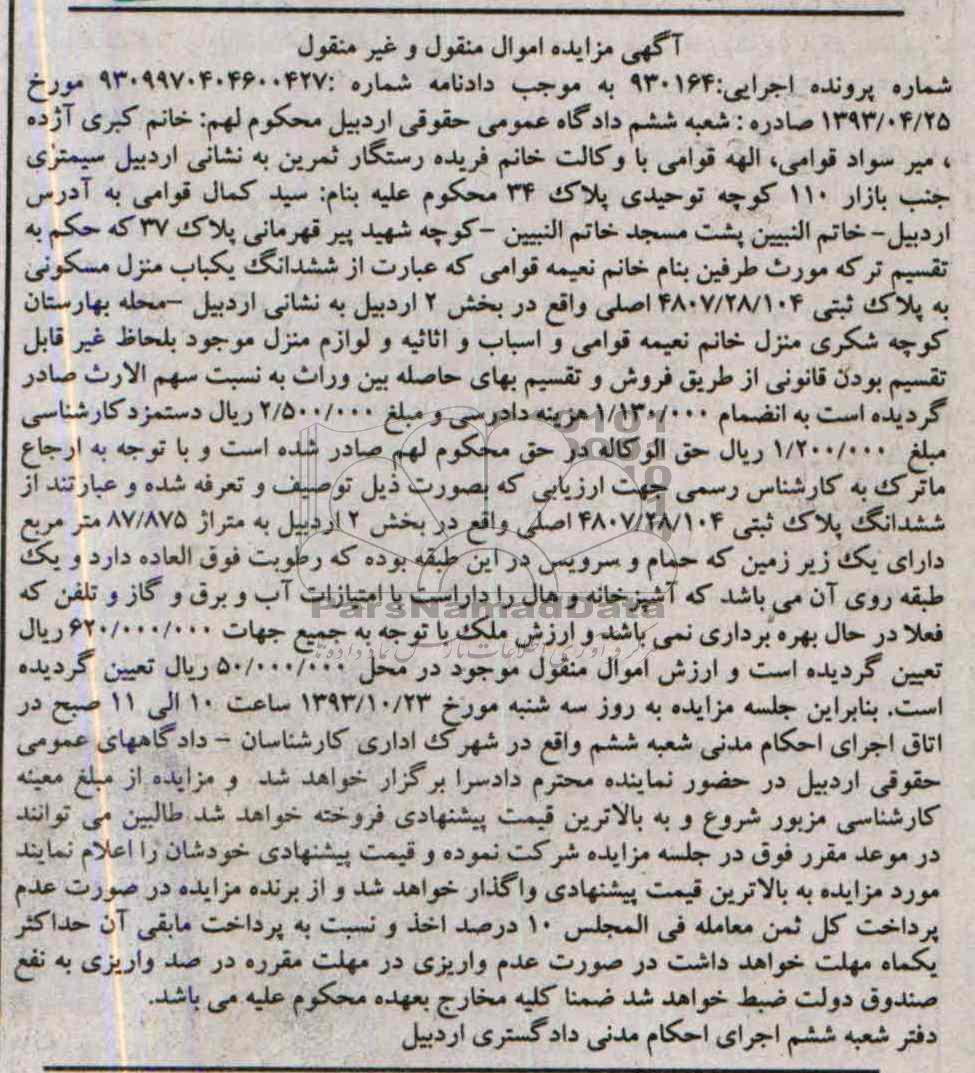 آگهی مزایده اموال منقول و غیر منقول
شماره پرونده اجرایی:۹۳۰۱۶۴ به موجب دادنامه شماره :۹۳۰۹۹۷۰۴۰۴۶۰۰۴۲۷ مورخ
۱۳۹۳/۰۴/۲۵ صادره : شعبه ششم دادگاه عمومی حقوقی اردبیل محکوم لهم: خانم کبری آژده
، میر سواد قوامی، الهه قوامی با وکالت خانم فریده رستگار ثمرین به نشانی اردبیل سیمتری
جنب بازار ۱۱۰ کوچه توحیدی پلاک ۳۴ محکوم علیه بنام: سید کمال قوامی به آدرس
اردبیل- خاتم النبیین پشت مسجد خاتم النبیین -کوچه شهید پیر قهرمانی پلاک ۳۷ که حکم به
تقسیم ترکه مورث طرفین بنام خانم نعیمه قوامی که عبارت از ششدانگ یکباب منزل مسکونی
به پلاک ثبتی ۴۸۰۷/۲۸/۱۰۴ اصلی واقع در بخش ۲ اردبیل به نشانی اردبیل -محله بهارستان
کوچه شکری منزل خانم نعیمه قوامی و اسباب و اثاثیه و لوازم منزل موجود بلحاظ غیر قابل
تقسیم بودن قانونی از طریق فروش و تقسیم بهای حاصله بین وراث به نسبت سهم الارث صادر
گردیده است به انضمام ۱/۱۳۰/۰۰۰ هزینه دادرسی و مبلغ ۲/۵۰۰/۰۰۰ ریال دستمزد کارشناسی
مبلغ ۱/۲۰۰/۰۰۰ ریال حق الوکاله در حق محکوم لهم صادر شده است و با توجه به ارجاع
ماترک به کارشناس رسمی جهت ارزیابی که بصورت ذیل توصیف و تعرفه شده و عبارتند از
ششدانگ پلاک ثبتی ۴۸۰۷/۲۸/۱۰۴ اصلی واقع در بخش ۲ اردبیل به متراژ ۸۷/۸۷۵ متر مربع
دارای یک زیر زمین که حمام و سرویس در این طبقه بوده که رطوبت فوق العاده دارد و یک
طبقه روی آن می باشد که آشپزخانه و هال را داراست با امتیازات آب و برق و گاز و تلفن که
فعلا در حال بهره برداری نمی باشد و ارزش ملک با توجه به جمیع جهات ۶۲۰/۰۰۰/۰۰۰ ریال
تعیین گردیده است و ارزش اموال منقول موجود در محل ۵۰/۰۰۰/۰۰۰ ریال تعیین گردیده
است. بنابراین جلسه مزایده به روز سه شنبه مورخ ۱۳۹۳/۱۰/۲۳ ساعت ۱۰ الی ۱۱ صبح در
اتاق اجرای احکام مدنی شعبه ششم واقع در شهرک اداری کارشناسان - دادگاههای عمومی
حقوقی اردبیل در حضور نماینده محترم دادسرا برگزار خواهد شد و مزایده از مبلغ معینه
کارشناسی مزبور شروع و به بالاترین قیمت پیشنهادی فروخته خواهد شد طالبین می توانند
در موعد مقرر فوق در جلسه مزایده شرکت نموده و قیمت پیشنهادی خودشان را اعلام نمایند
مورد مزایده به بالاترین قیمت پیشنهادی واگذار خواهد شد و از برنده مزایده در صورت عدم
پرداخت کل ثمن معامله فی المجلس ۱۰ درصد اخذ و نسبت به پرداخت مابقی آن حداکثر
یکماه مهلت خواهد داشت در صورت عدم واریزی در مهلت مقرره در صد واریزی به نفع
صندوق دولت ضبط خواهد شد ضمنا کلیه مخارج بعهده محکوم علیه می باشد.
دفتر شعبه ششم اجرای احکام مدنی دادگستری اردبیل
ParsNamadData